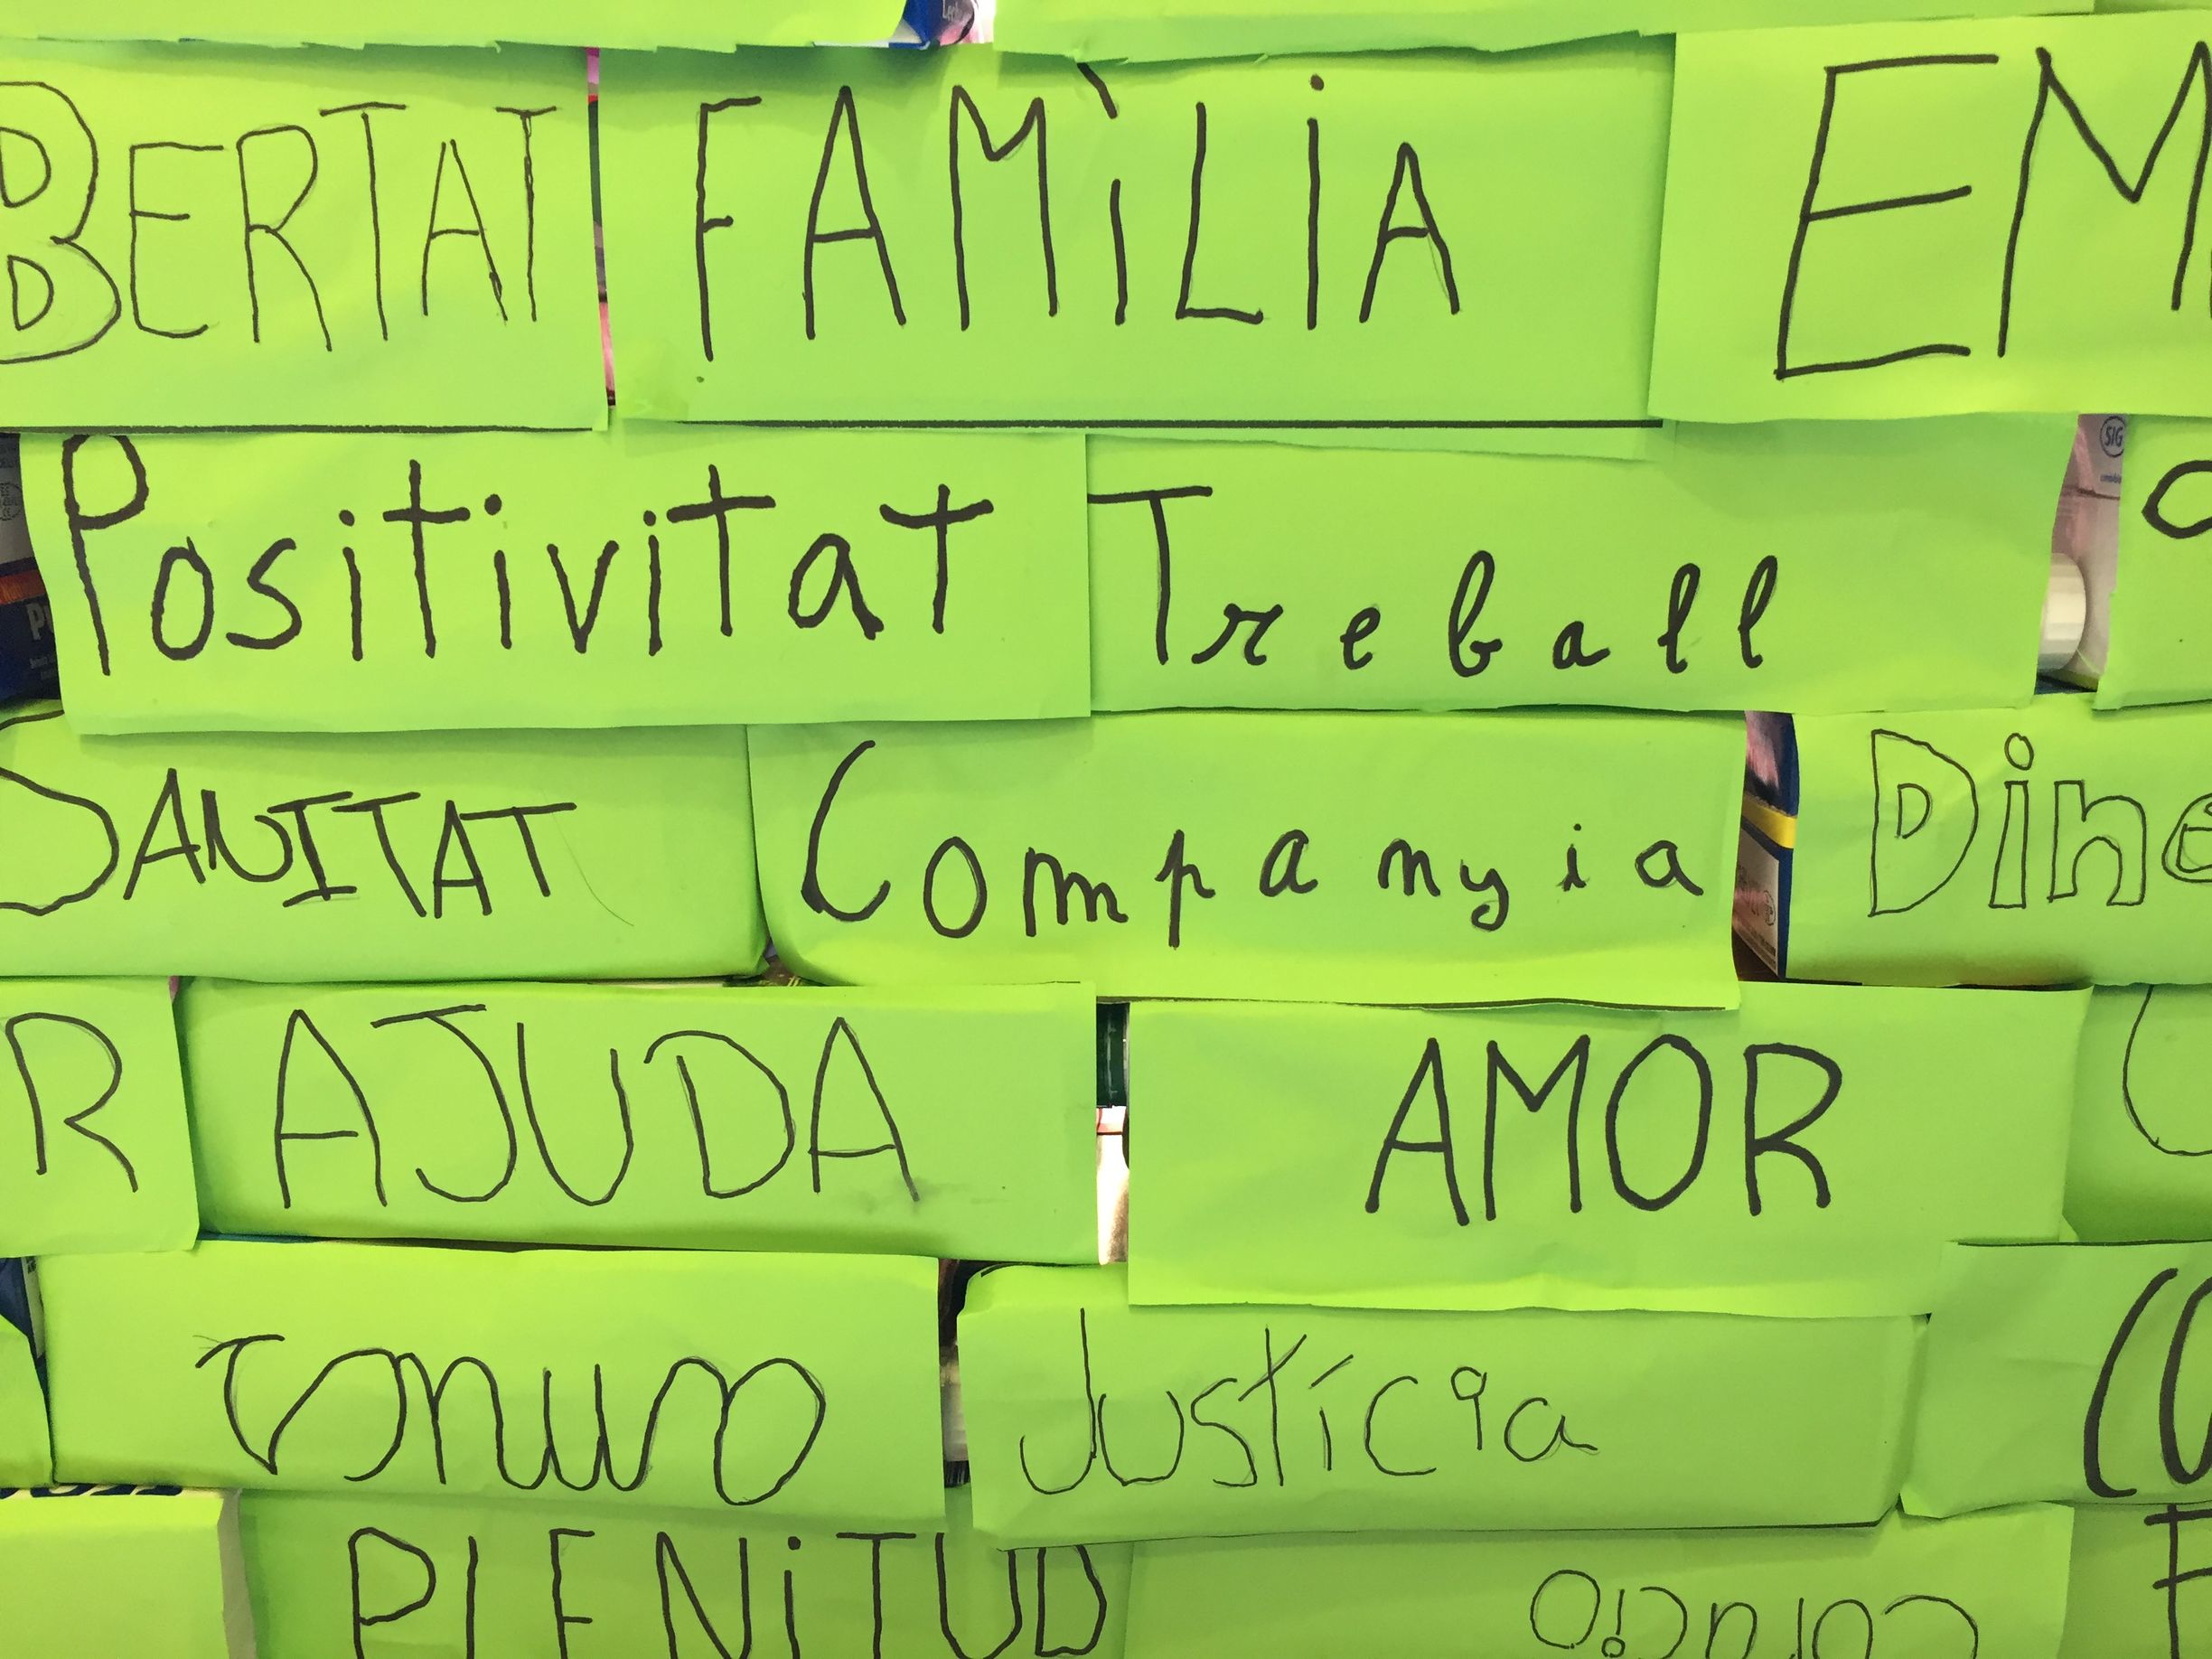 BERTAT
FAMÌLIA
EM
Positivitat
Treball
SANITAT
Companyia
Dine
R
AJUDA
AMOR
Justícia
PLENITUD